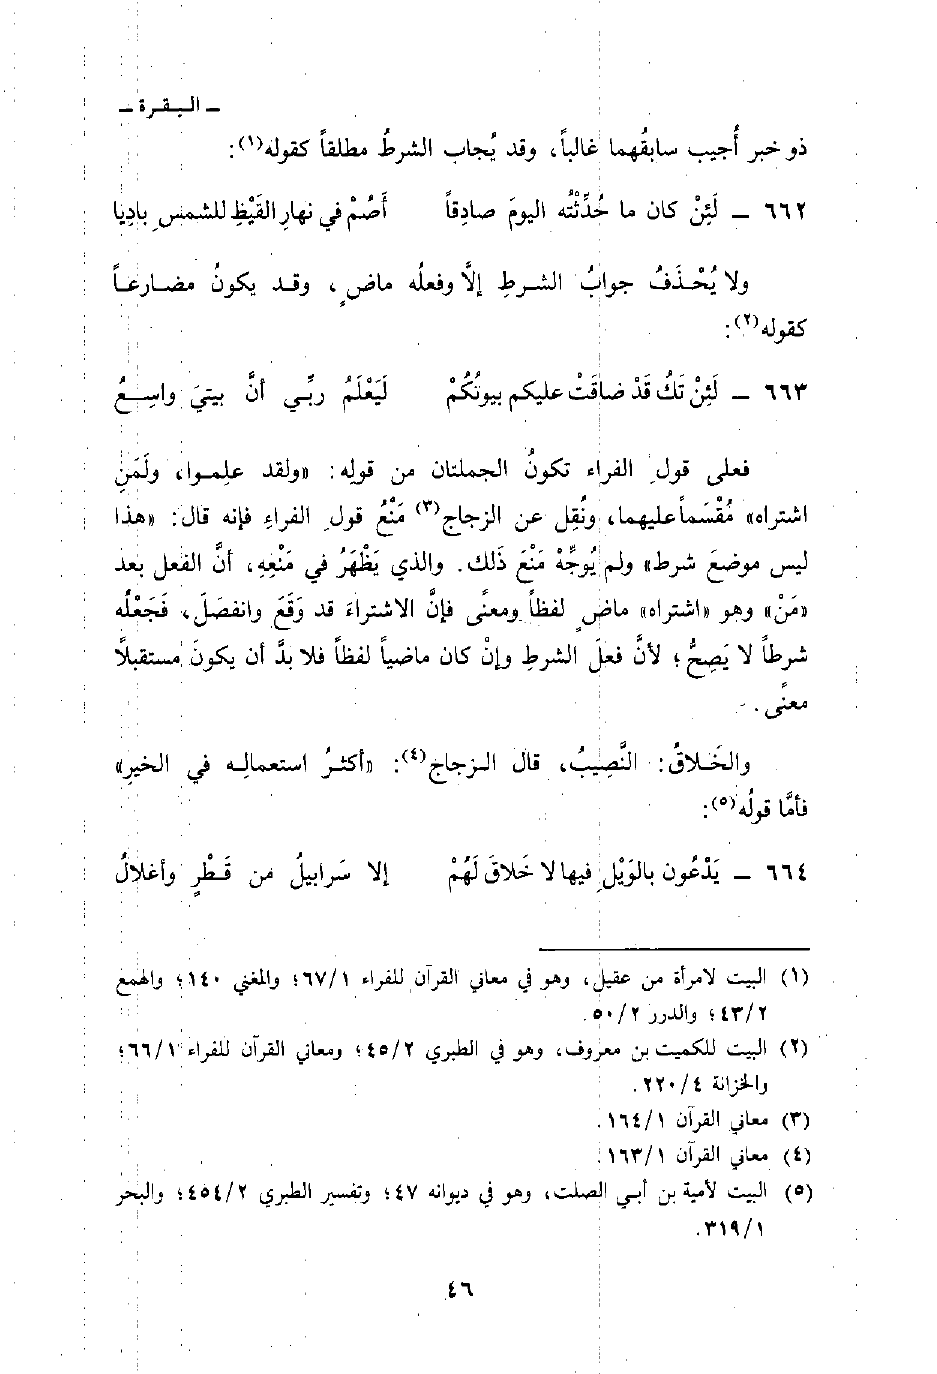 ـ البقرة ـ
ذو خبر أُجيب سابقُهما غالباً، وقد يُجاب الشرطُ مطلقاً كقوله(١):
٦٦٢ ـ لَئِنْ كان ما حُدِّثْتُه اليومَ صادِقاً أَصُمْ في نهارِ القَيْظِ للشمسِ بادِيا
ولا يُحْذَفُ جوابُ الشرطِ إلَّا وفعلُه ماضٍ، وقد يكونُ مضارعاً
كقوله(٢):
٦٦٣ ـ لَئِنْ تَكُ قَدْ ضاقَتْ عليكم بيوتُكُمْ لَيَعْلَمُ ربِّي أنَّ بيتيَ واسِعُ
فعلى قولِ الفراء تكونُ الجملتان من قولِه: «ولقد علِموا، ولَمَنِ
اشتراه» مُقْسَماً عليهما، ونُقِل عن الزجاج(٣) مَنْعُ قولِ الفراءِ فإنه قال: «هذا
ليس موضعَ شرط» ولم يُوجِّهْ مَنْعَ ذلك. والذي يَظْهَرُ في مَنْعِهِ، أنَّ الفعل بعد
«مَنْ» وهو «اشتراه» ماضٍ لفظاً ومعنًى فإنَّ الاشتراءَ قد وَقَعَ وانفصَلَ، فَجَعْلُه
شرطاً لا يَصِحُّ؛ لأنَّ فعلَ الشرطِ وإنْ كان ماضياً لفظاً فلا بدَّ أن يكونَ مستقبلًا
معنًى.
والخَلاقُ: النَّصِيبُ، قال الزجاج(٤): «أكثرُ استعمالِه في الخيرِ»
فأمَّا قولُه(٥):
٦٦٤ ـ يَدْعُون بالوَيْلِ فيها لا خَلاقَ لَهُمْ إلا سَرابيلُ من قَطْرٍ وأغلالُ
(١) البيت لامرأة من عقيل، وهو في معاني القرآن للفراء ٦٧/١؛ والمغني ١٤٠؛ والهمع
٤٣/٢؛ والدرر ٥٠/٢.
(٢) البيت للكميت بن معروف، وهو في الطبري ٤٥/٢؛ ومعاني القرآن للفراء ٦٦/١؛
والخزانة ٢٢٠/٤.
(٣) معاني القرآن ١٦٤/١.
(٤) معاني القرآن ١٦٣/١.
(٥) البيت لأمية بن أبي الصلت، وهو في ديوانه ٤٧؛ وتفسير الطبري ٤٥٤/٢؛ والبحر
٣١٩/١.
٤٦